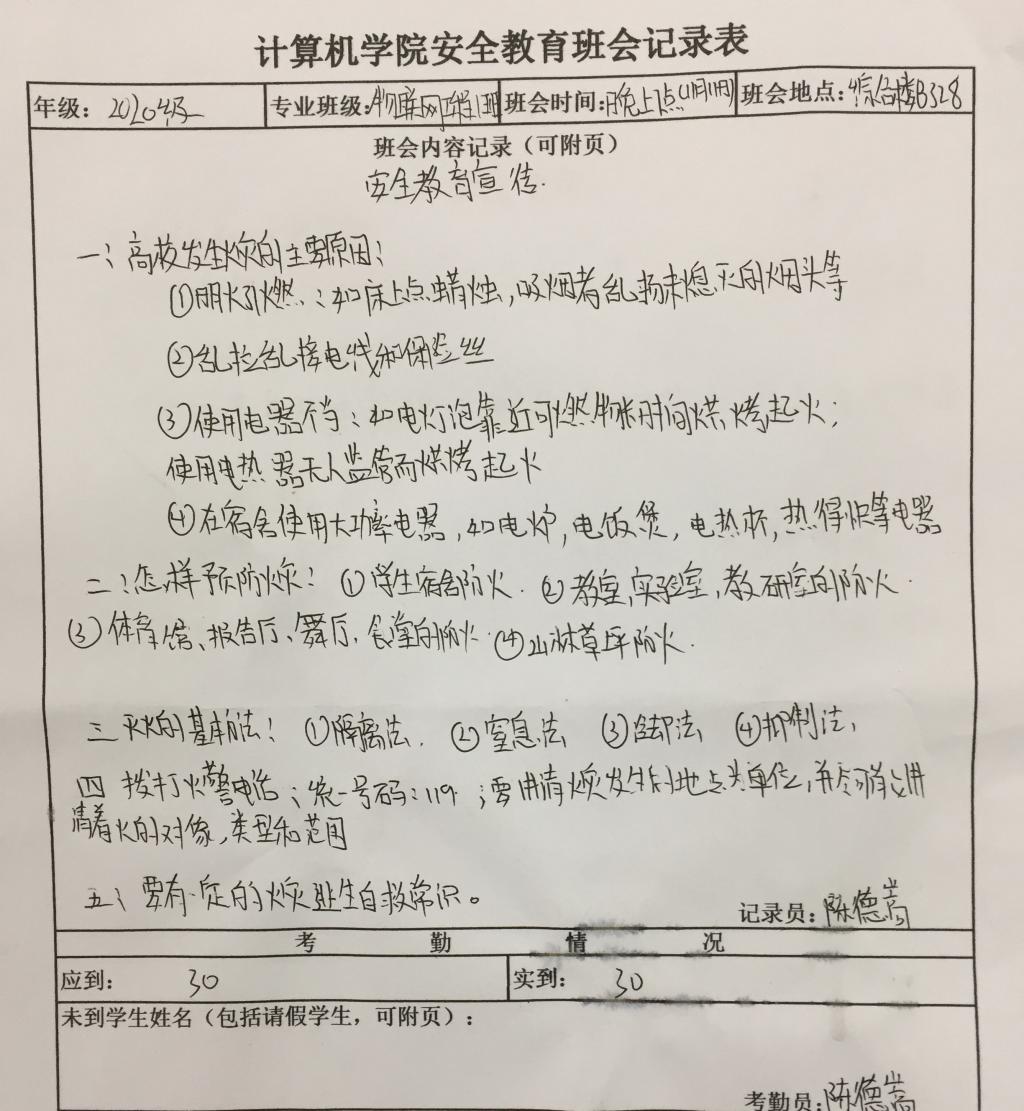 计算机学院安全教育班会记录表
年级：2020级 专业班级：物联网工程1班 班会时间：晚上7点(11月11日) 班会地点：综合楼B328
班会内容记录（可附页）
安全教育宣传.
一、高校发生火灾的主要原因：
①明火引燃：如床上点蜡烛，吸烟者乱扔未熄灭的烟头等
②乱拉乱接电线和保险丝
③使用电器不当：如电灯泡靠近可燃物长时间烘烤起火；
使用电热器无人监管而烘烤起火
④在宿舍使用大功率电器，如电炉，电饭煲，电热杯，热得快等电器
二、怎样预防火灾：①学生宿舍防火. ②教室，实验室，教研室的防火.
③体育馆、报告厅、舞厅、食堂的防火. ④山林草坪防火.
三 灭火的基本方法：①隔离法. ②窒息法 ③冷却法 ④抑制法.
四 拨打火警电话；统一号码：119；要讲清火灾发生的地点单位，并尽可能讲
清着火的对象，类型和范围
五、要有一定的火灾逃生自救常识。
记录员：陈德嵩
考 勤 情 况
应到： 30 实到： 30
未到学生姓名（包括请假学生，可附页）：
考勤员：陈德嵩